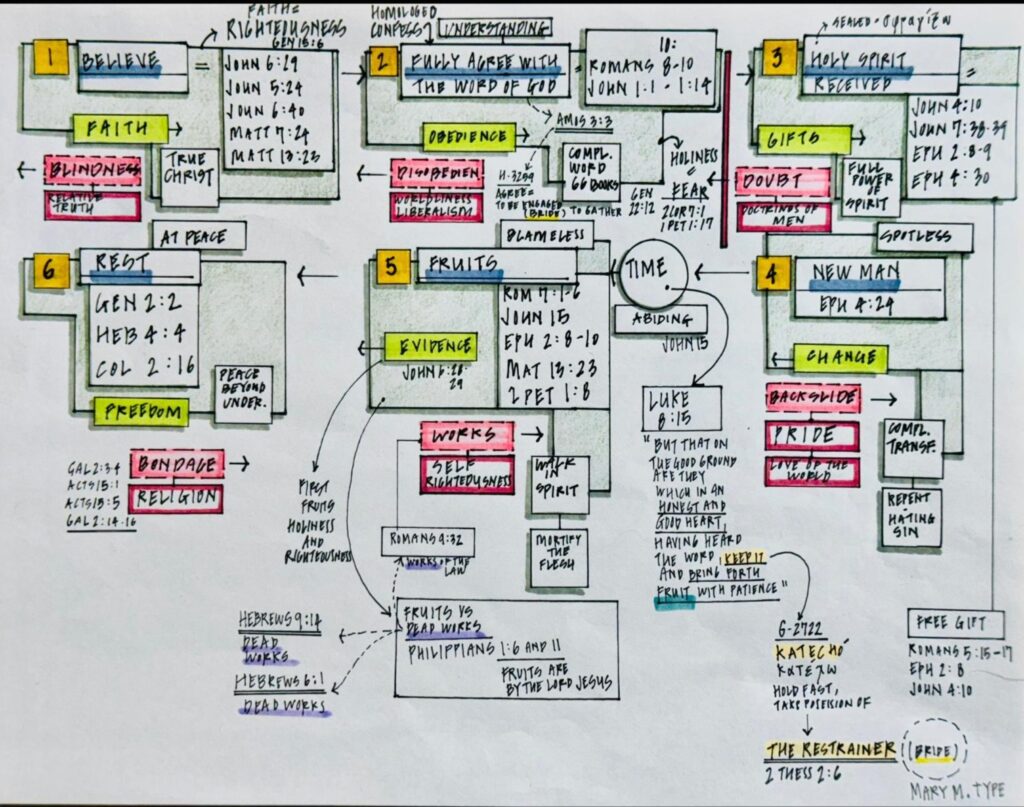 FAITH =
RIGHTEOUSNESS
GEN 15:6
1
BELIEVE
=
JOHN 6:29
JOHN 5:24
JOHN 6:40
MATT 7:24
MATT 13:23
FAITH
TRUE
CHRIST
BLINDNESS
RELATIVE
TRUTH
HOMOLOGEO
CONFESS
UNDERSTANDING
2
FULLY AGREE WITH
THE WORD OF GOD
=
10:
ROMANS 8-10
JOHN 1:1 - 1:14
OBEDIENCE
AMOS 3:3
COMPL.
WORD
66 BOOKS
HOLINESS
=
FEAR
2 COR 7:1
1 PET 1:17
GEN
22:12
DISOBEDIEN.
WORLDLINESS
LIBERALISM
H-3259
AGREE =
TO BE ENGAGED
(BRIDE) TO GATHER
SEALED = σφραγίζω
3
HOLY SPIRIT
RECEIVED
=
JOHN 4:10
JOHN 7:38-39
EPH 2:8-9
EPH 4:30
GIFTS
FULL
POWER OF
SPIRIT
DOUBT
DOCTRINES OF
MEN
SPOTLESS
4
NEW MAN
EPH 4:24
CHANGE
BACKSLIDE
PRIDE
LOVE OF THE
WORLD
COMPL.
TRANSF.
REPENT
HATING
SIN
TIME
ABIDING
JOHN 15
LUKE
8:15
"BUT THAT ON
THE GOOD GROUND
ARE THEY
WHICH IN AN
HONEST AND
GOOD HEART,
HAVING HEARD
THE WORD, KEEP IT
AND BRING FORTH
FRUIT WITH PATIENCE"
G-2722
KATECHÓ
κατέχω
HOLD FAST,
TAKE POSESION OF
THE RESTRAINER
(BRIDE)
2 THESS 2:6
BLAMELESS
5
FRUITS
ROM 7:1-6
JOHN 15
EPH 2:8-10
MAT 13:23
2 PET 1:8
EVIDENCE
JOHN 6:28-
29
WORKS
SELF
RIGHTEOUSNESS
WALK
IN
SPIRIT
MORTIFY
THE
FLESH
FIRST
FRUITS
HOLINESS
AND
RIGHTEOUSNESS
ROMANS 9:32
WORKS OF THE
LAW
FRUITS VS
DEAD WORKS
PHILIPPIANS 1:6 AND 11
FRUITS ARE
BY THE LORD JESUS
HEBREWS 9:14
DEAD
WORKS
HEBREWS 6:1
DEAD WORKS
AT PEACE
6
REST
GEN 2:2
HEB 4:4
COL 2:16
PEACE
BEYOND
UNDER.
FREEDOM
BONDAGE
RELIGION
GAL 2:3-4
ACTS 15:1
ACTS 15:5
GAL 2:14-16
FREE GIFT
ROMANS 5:15-17
EPH 2:8
JOHN 4:10
MARY M. TYPE